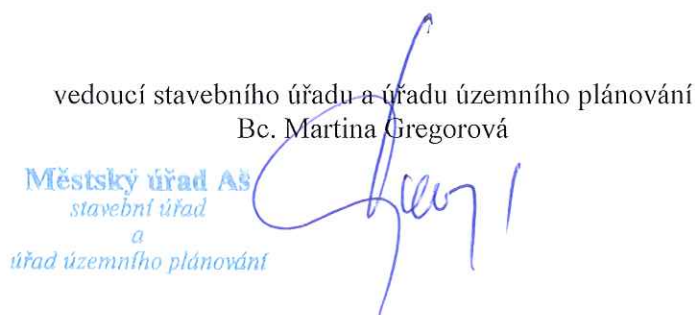 vedoucí stavebního úřadu a úřadu územního plánování
Bc. Martina Gregorová
Městský úřad Aš
stavební úřad
a
úřad územního plánování